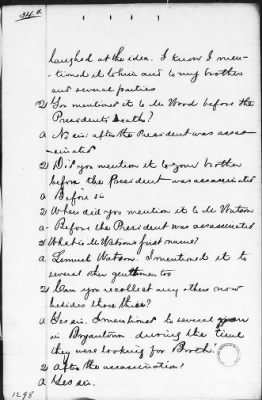 laughed at the idea. I know I men-
tioned it to him and to my brother
and several parties
Q You mentioned it to Mr Wood before the
Presidents Death?
a No sir: after the President was assas-
sinated
Q Did you mention it to your brother
before the President was assassinated
a Before sir
Q Where did you mention it to Mr Watson
a Before the President was assassinated
Q What is Mr Watsons first name?
a Lemuel Watson. I mentioned it to
several other gentlemen too
Q Can you recollect any others now
besides those three?
a Yes sir. I mentioned to several
in Bryantown during the time
they were looking for Booth:
Q After the assassination?
a Yes sir.
1298